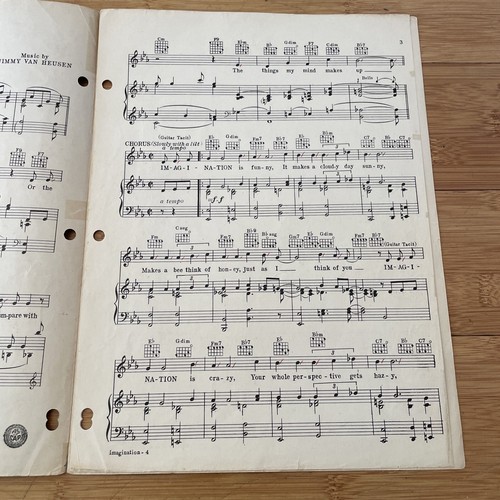 Music by
JIMMY VAN HEUSEN
Or the
mpare with
3
Cm F9 Bb Eb Gdim Fm7 Cdim Bb7
The things my mind makes up
Bells
(Guitar Tacit)
CHORUS (Slowly with a lilt)
a tempo
Eb Gdim Fm7 Bb7 Eb Bbm C7 Bb C7
IM-AG-I - NATION is fun-ny, It makes a cloud-y day sun-ny,
a tempo
Fm Caug Fm7 Bb9 Bb aug Gm7 Eb Gdim Fm7 Bb7 (Guitar Tacit)
3
Makes a bee think of hon-ey, just as I think of you IM-AG-I -
Eb Gdim Fm7 Bb7 Eb Bbm C7 Bb C7
3
NATION is cra-zy, Your whole per-spec-tive gets ha-zy,
Imagination - 4